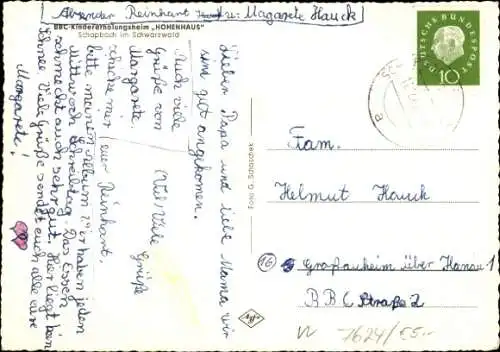 Absender Reinhart u. Magarete Hauck
BBC-Kindererholungsheim „HOHENHAUS"
Schapbach im Schwarzwald
Lieber Papa und liebe Mama wir
sind gut angekommen.
Auch viele
Grüße von
Margarete.
schicke mir
bitte meinen Album
euer Reinhart.
Viel Viele Grüße
wir haben jeden
Mittwoch Schreibtag. Das Essen
schmeckt auch sehr gut. Hier liegt kein
Schnee. Viele Grüße sendet euch alle eure
Margarete!
Foto G. Schabbek
Agfa
DEUTSCHE BUNDESPOST
10
Fam.
Helmut Hauck
(16) Großauheim über Hanau 1
BBC Straße 2
7624/55.-